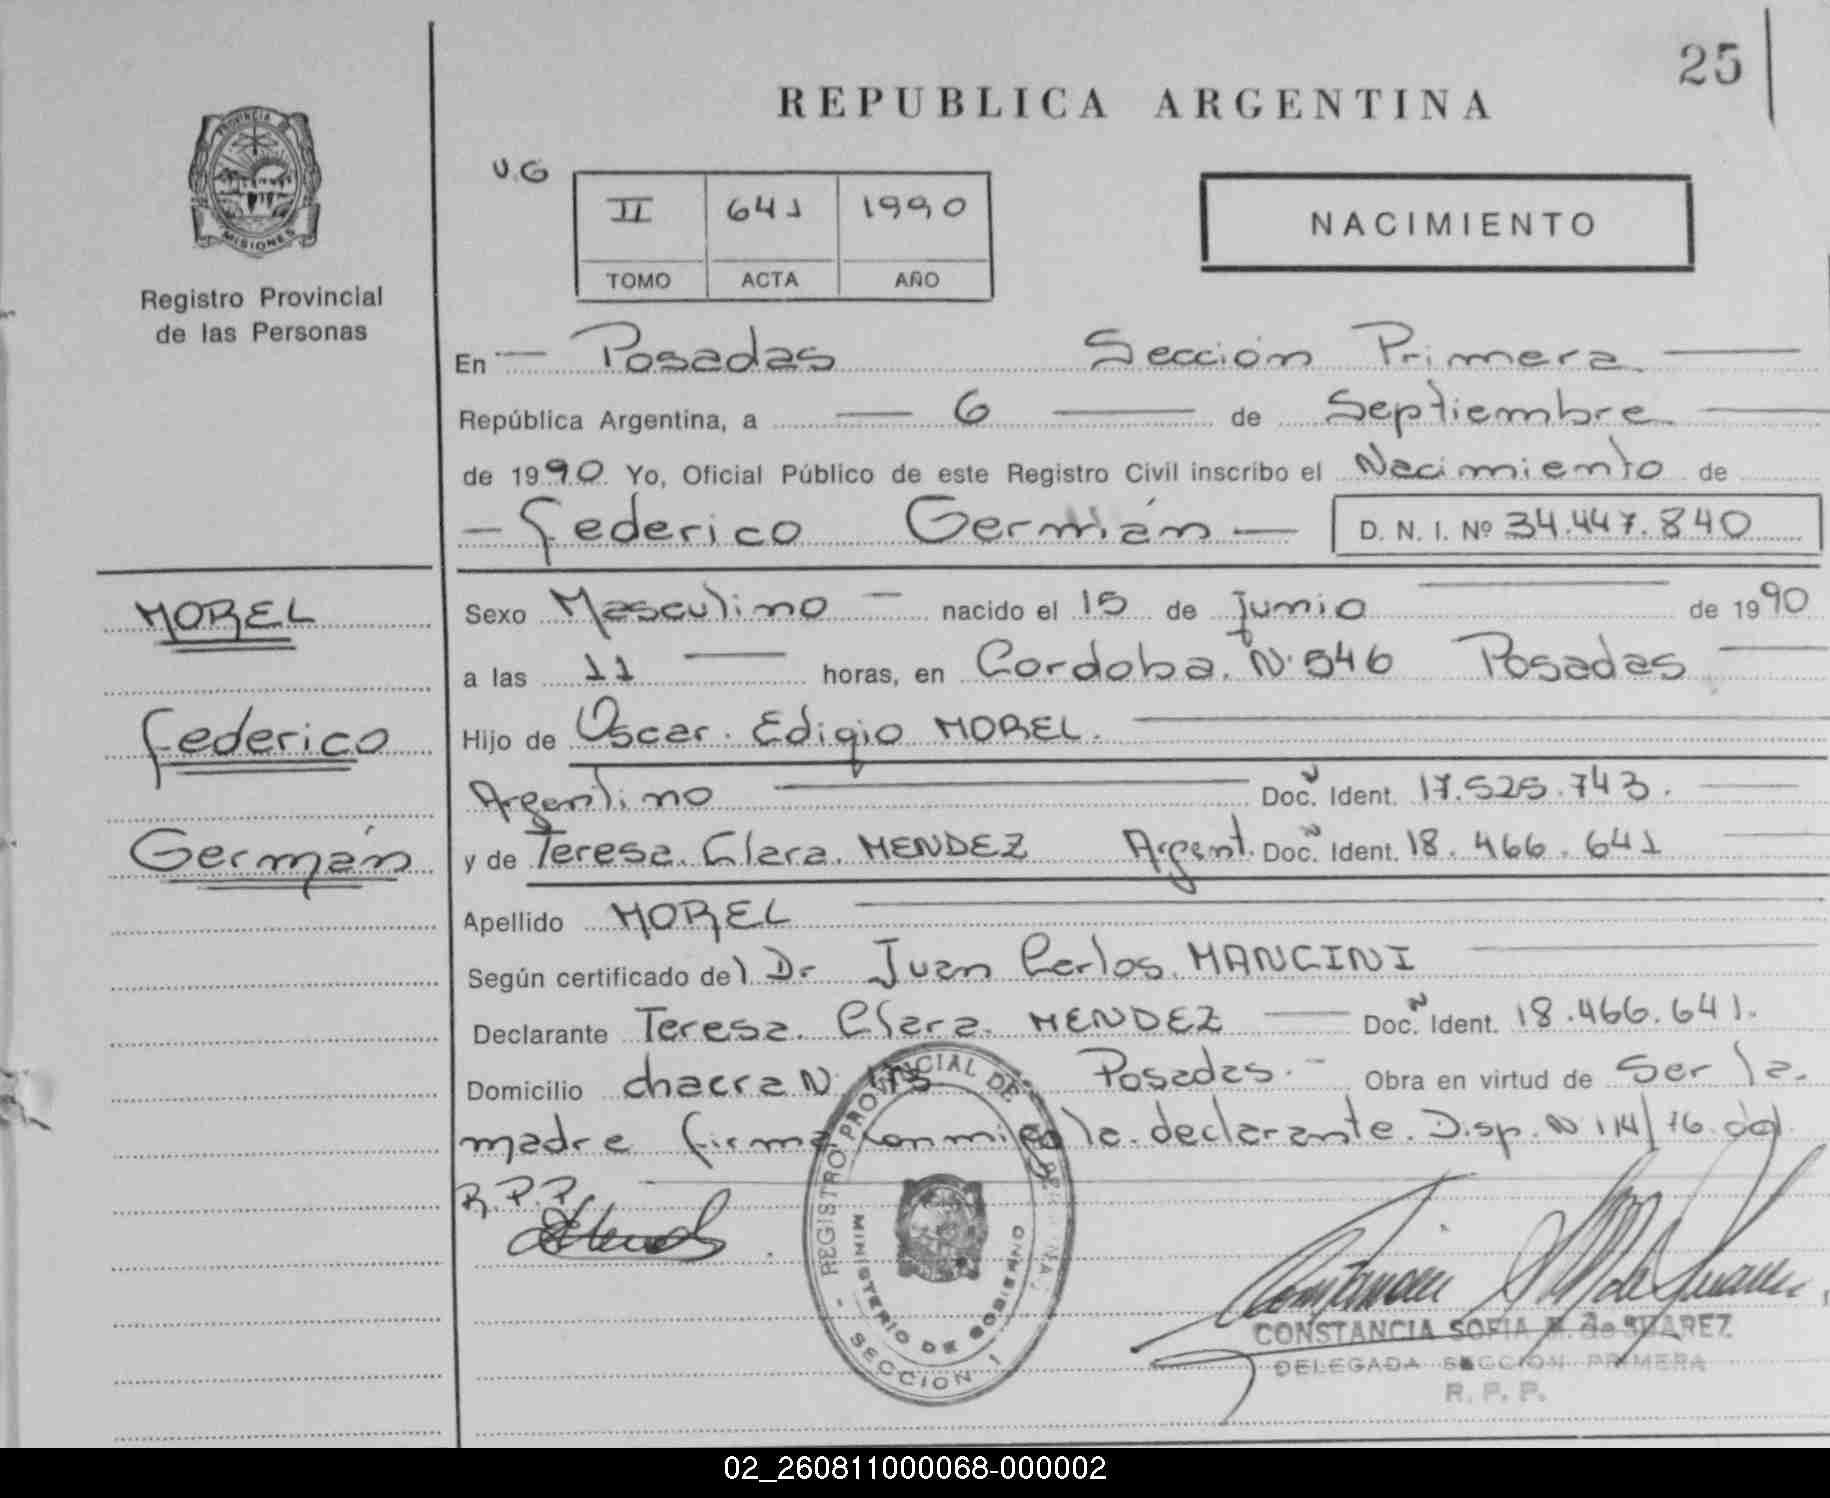 25
REPUBLICA ARGENTINA
PROVINCIA DE
MISIONES
Registro Provincial
de las Personas
V.G
II 641 1990
TOMO ACTA AÑO
NACIMIENTO
En — Posadas Sección Primera —
República Argentina, a — 6 — de Septiembre —
de 1990 Yo, Oficial Público de este Registro Civil inscribo el Nacimiento de
— Federico Germán — D. N. I. Nº 34.447.840
MOREL
Federico
Germán
Sexo Masculino — nacido el 15 de Junio — de 1990
a las 11 — horas, en Cordoba. N° 546 Posadas —
Hijo de Oscar. Edigio MOREL. —
Argentino — Doc. Ident. 17.525.743. —
y de Teresa. Clara. MENDEZ Argent. Doc. Ident. 18.466.641 —
Apellido MOREL —
Según certificado del Dr Juan Carlos. MANCINI —
Declarante Teresa. Clara. MENDEZ — Doc. Ident. 18.466.641.
Domicilio chacra N° 173 Posadas. — Obra en virtud de Ser la.
madre firma conmigo la declarante. Disp. N° 114/76. del
R.P.P.
REGISTRO PROVINCIAL DE
MINISTERIO DE GOBIERNO
- SECCION 1
CONSTANCIA SOFIA M. de SUAREZ
DELEGADA SECCION PRIMERA
R. P. P.
02_260811000068-000002